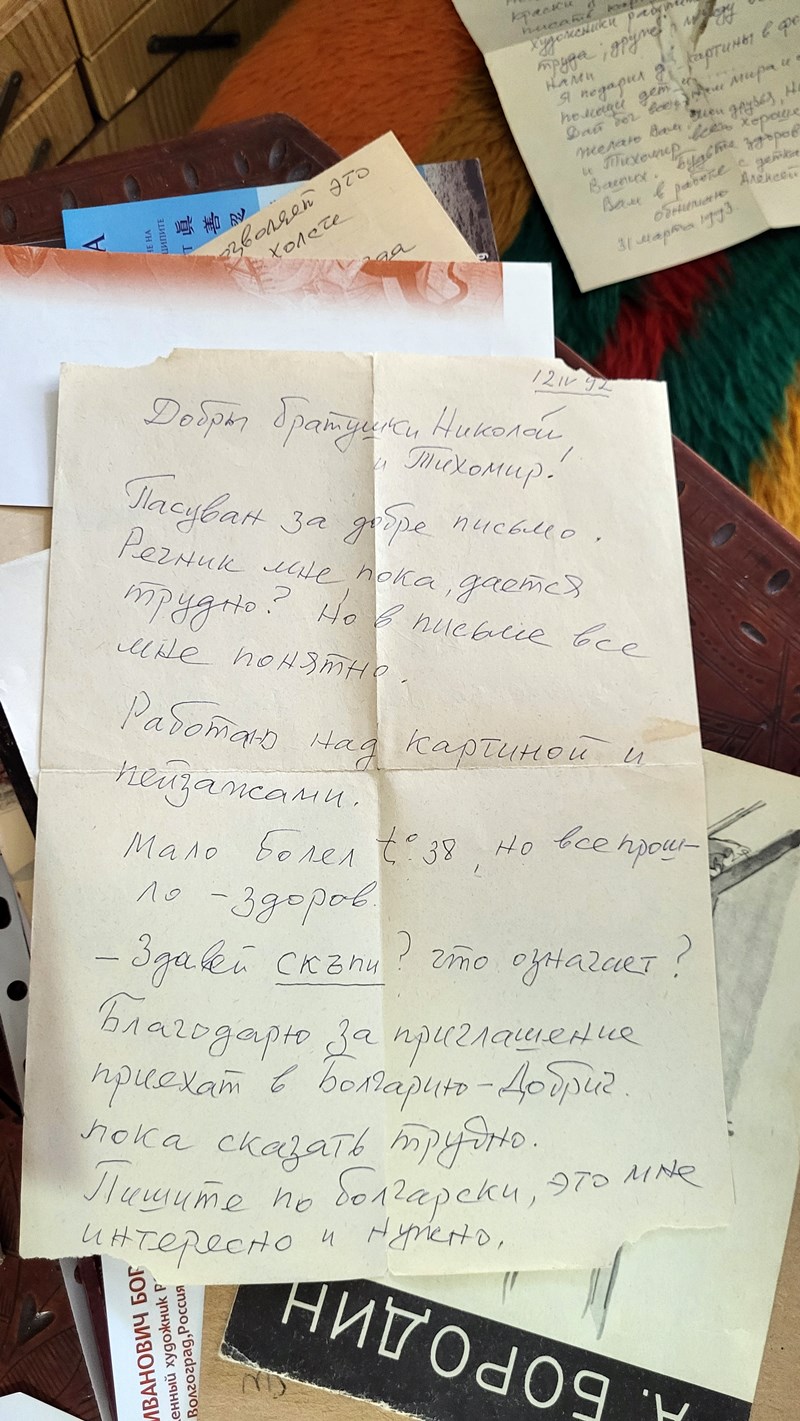 крайки
писать
художники
труда, друж- между
нами
Я подарил картины в фо
помощи дет
Дай бог всем нам мира и
желаю Вам, мои друзья, Н
и Тихомир всего хороше
Ваших. Будьте здоров
Вам в работе с детка
обнимаю Алексей
31 марта 1993.
眞
善
忍
НИЕ НА
ЦИПИТЕ
А
озволяет это
холсте
12 IV 92
Добры братушки Николай
и Тихомир!
Пасуван за добре письмо.
Речник мне пока, дается
трудно? Но в письме все
мне понятно.
Работаю над картиной и
пейзажами.
Мало болел t° 38, но все прош-
ло - здоров.
- Здавей скъпи? что означает?
Благодарю за приглашение
приехат в Болгарию - Добрич.
пока сказать трудно.
Пишите по болгарски, это мне
интересно и нужно.
ИВАНОВИЧ БОР
енный художник Р
Волгоград, Россия
А. БОРОДИН